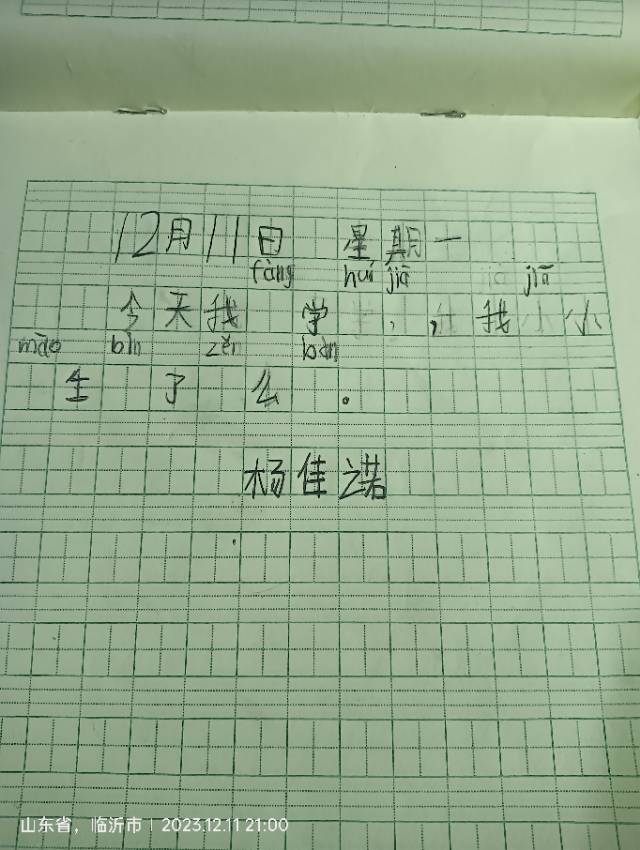 12月11日 星期一
fàng huí jiā jiā
今天我 学 , , 我 小
māo bìn zěn bàn
生 了 么 。
杨佳诺
山东省，临沂市 | 2023.12.11 21:00